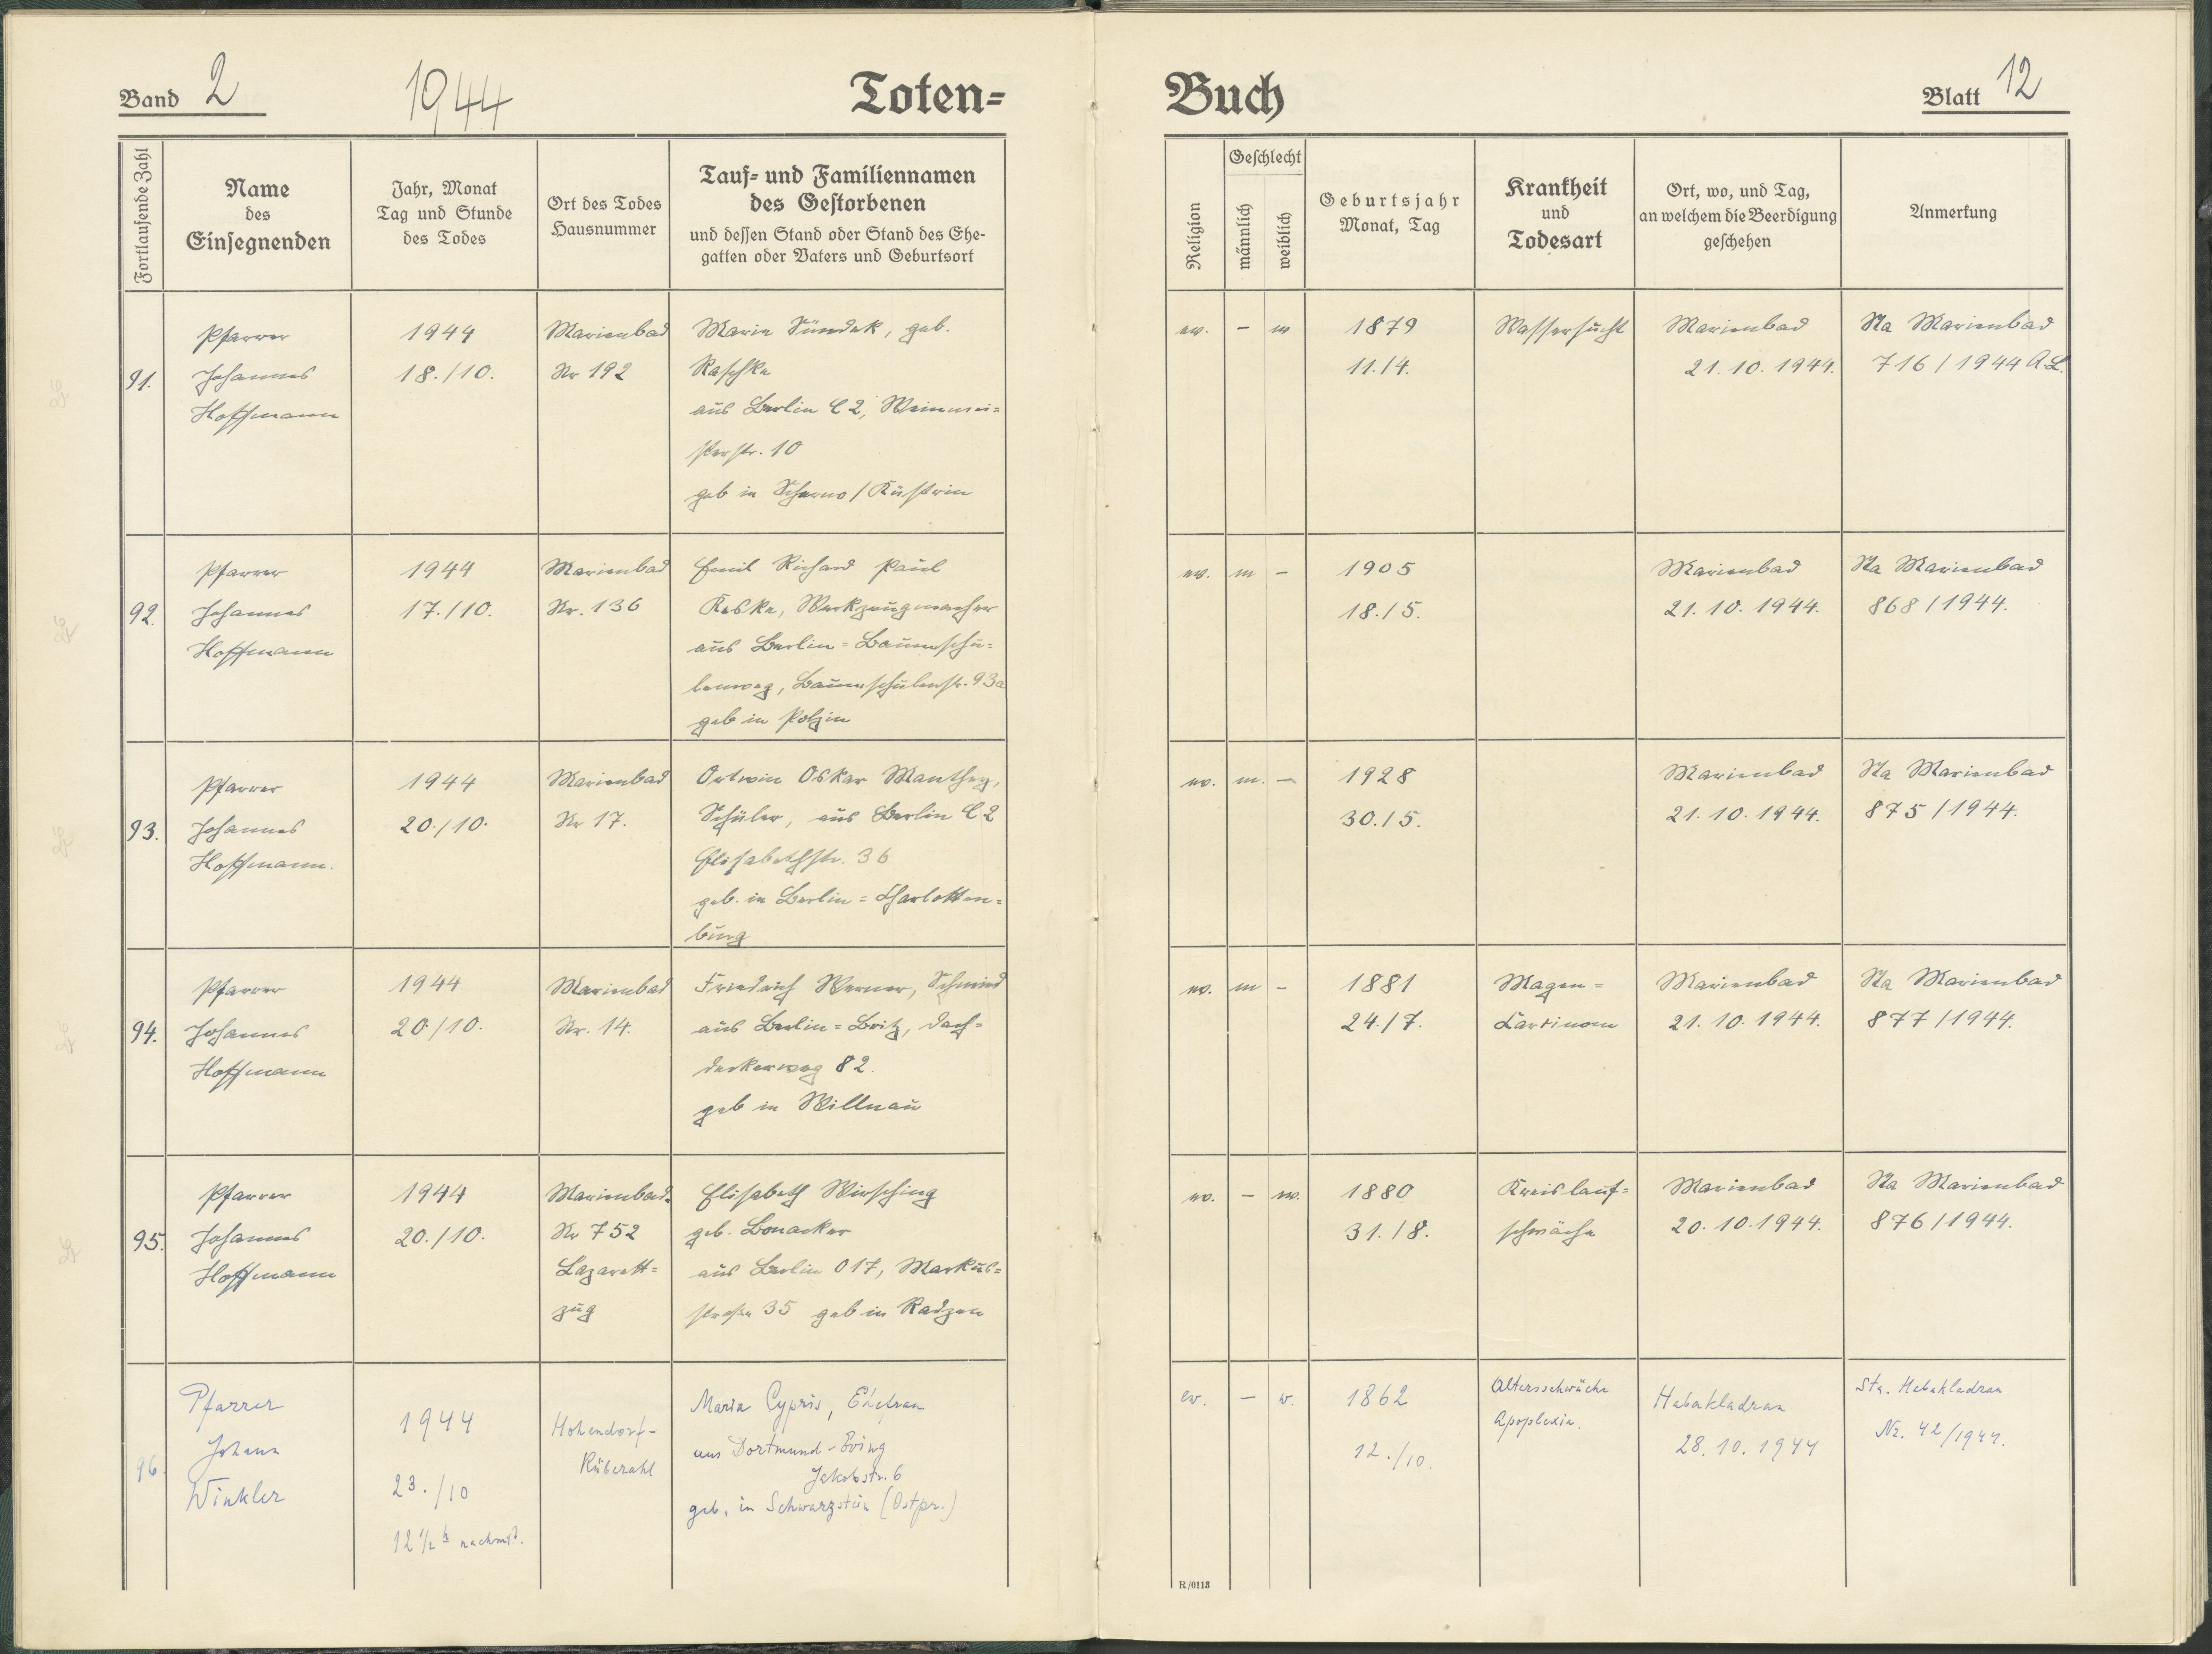 Band 2
1944
Toten=
Buch
Blatt 12
Fortlaufende Zahl
Name
des
Einsegnenden
Jahr, Monat
Tag und Stunde
des Todes
Ort des Todes
Hausnummer
Tauf= und Familiennamen
des Gestorbenen
und dessen Stand oder Stand des Ehe-
gatten oder Vaters und Geburtsort
Religion
Geschlecht
männlich
weiblich
Geburtsjahr
Monat, Tag
Krankheit
und
Todesart
Ort, wo, und Tag,
an welchem die Beerdigung
geschehen
Anmerkung
91.
Pfarrer
Johannes
Hoffmann
1944
18./10.
Marienbad
Nr 192
Marie Sündek, geb.
Raschke
aus Berlin C 2, Weinmei=
sterstr. 10
geb in Scharno / Küstrin
ev.
–
w
1879
11./4.
Wassersucht
Marienbad
21. 10. 1944.
Sta Marienbad
716 / 1944 A.L.
92.
Pfarrer
Johannes
Hoffmann
1944
17./10.
Marienbad
Nr. 136
Emil Richard Paul
Reske, Werkzeugmacher
aus Berlin = Baumschu=
lenweg, Baumschulenstr. 93a
geb in Polzin
ev.
m
–
1905
18./5.
Marienbad
21. 10. 1944.
Sta Marienbad
868 / 1944.
93.
Pfarrer
Johannes
Hoffmann.
1944
20./10.
Marienbad
Nr 17.
Ortwin Oskar Manthey,
Schüler, aus Berlin C 2
Elisabethstr. 36
geb. in Berlin = Charlotten=
burg
ev.
m.
–
1928
30./5.
Marienbad
21. 10. 1944.
Sta Marienbad
875 / 1944.
94.
Pfarrer
Johannes
Hoffmann
1944
20./10.
Marienbad
Nr. 14.
Friedrich Werner, Schmied
aus Berlin = Britz, Dach=
deckerweg 82.
geb in Willnau
ev.
m
–
1881
24./7.
Magen =
Carzinom
Marienbad
21. 10. 1944.
Sta Marienbad
877 / 1944.
95.
Pfarrer
Johannes
Hoffmann
1944
20./10.
Marienbad.
Nr 752
Lazarett=
zug
Elisabeth Wirsching
geb. Bonacker
aus Berlin O 17, Markus=
straße 35 geb in Radzen
ev.
–
w.
1880
31./8.
Kreislauf=
schwäche
Marienbad
20. 10. 1944.
Sta Marienbad
876 / 1944.
96.
Pfarrer
Johann
Winkler
1944
23./10
12 1/2 h nachmit.
Hohendorf-
Rübezahl
Maria Cypris, Ehefrau
aus Dortmund - Eving
Jakobstr. 6
geb. in Schwarzstein (Ostpr.)
ev.
–
w.
1862
12./10.
Altersschwäche
Apoplexia.
Habakladrau
28. 10. 1944
Sta. Habakladrau
Nr. 42/1944.
R/0113